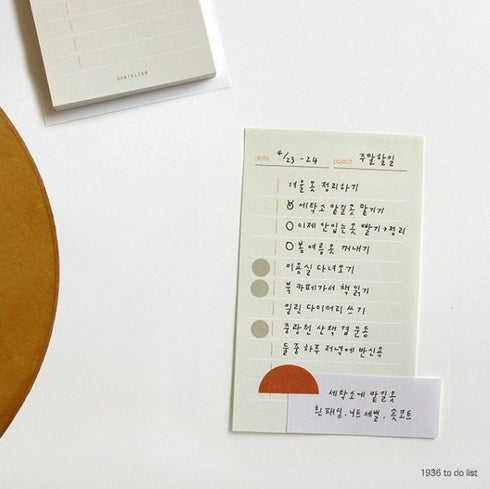 SHATELIER
date 4/23 - 24 object 주말할일
겨울옷 정리하기
세탁소 맡길옷 맡기기
이제 안입는옷 빨기→정리
봄여름옷 꺼내기
미용실 다녀오기
북카페가서 책읽기
밀린 다이어리 쓰기
중랑천 산책 겸 운동
둘 중 하루 저녁에 반신욕
세탁소에 맡길옷
흰패딩, 니트 세벌, 코트
1936 to do list